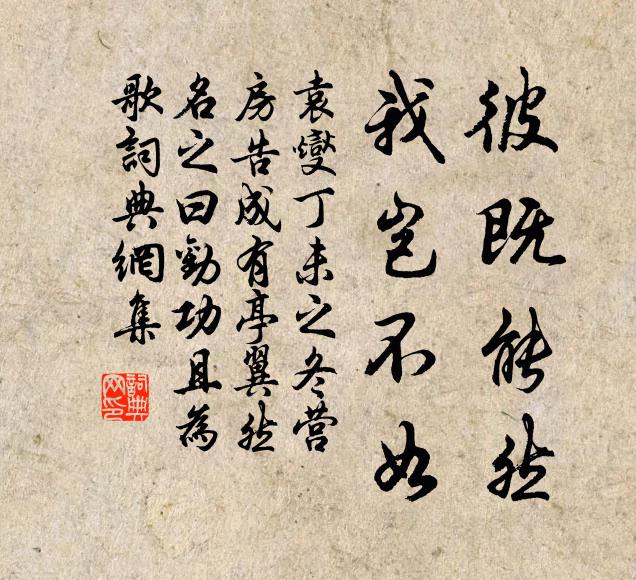 彼既能然
我岂不如
袁燮丁未之冬营
房告成有亭翼然
名之曰勸功且為
歌詞典網集
詞典
网印